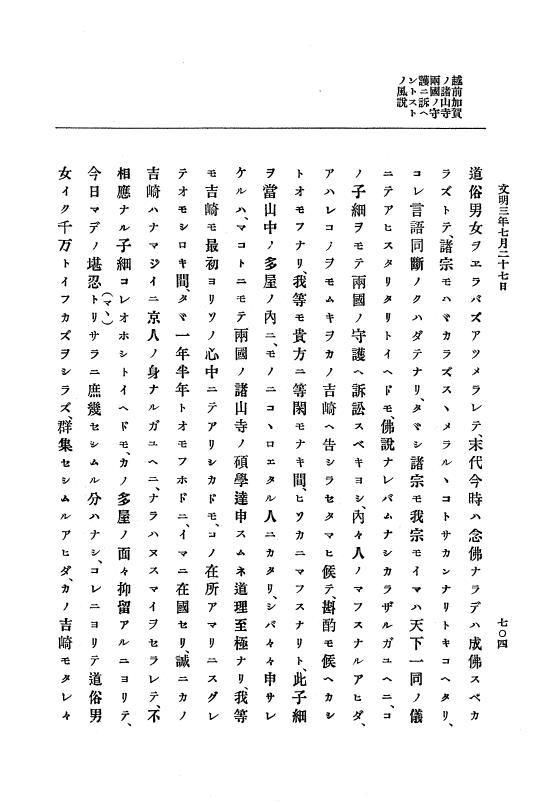 文明三年七月二十七日
七〇四
越前加賀
ノ諸山寺
兩國ノ守
護ニ訴ヘ
ントスト
ノ風說
道俗男女ヲヱラバズアツメラレテ、末代今時ハ念佛ナラデハ成佛スベカ
ラズトテ、諸宗モハヾカラズスヽメラルヽコトサカンナリトキコヘタリ、
コレ言語同斷ノクハダテナリ、タヾシ諸宗モ我宗モイマハ天下一同ノ儀
ニテアヒスタリタリトイヘドモ、佛說ナレバムナシカラザルガユヘニ、コ
ノ子細ヲモテ兩國ノ守護ヘ訴訟スベキヨシ、內々人ノマフスナルアヒダ、
アハレコノヲモムキヲカノ吉崎ヘ告シラセタマヒ候テ、斟酌モ候ヘカシ
トオモフナリ、我等モ貴方ニ等閑モナキ間、ヒソカニマフスナリト、此子細
ヲ當山中ノ多屋ノ內ニ、モノニコヽロエタル人ニカタリ、シバ々々申サレ
ケルハ、マコトニモテ兩國ノ諸山寺ノ碩學達申スムネ道理至極ナリ、我等
モ吉崎モ最初ヨリソノ心中ニテアリシカドモ、コノ在所アマリニスグレ
テオモシロキ間、タヾ一年半年トオモフホドニ、イマニ在國セリ、誠ニカノ
吉崎ハナマジイニ京人ノ身ナルガユヘニ、ナラハヌスマイヲセラレテ、不
相應ナル子細コレオホシトイヘドモ、カノ多屋ノ面々抑留アルニヨリテ、
今日マデノ堪忍トリ(マヽ)サラニ庶幾セシムル分ハナシ、コレニヨリテ道俗男
女イク千万トイフカズヲシラズ、群集セシムルアヒダ、カノ吉崎モタレ々